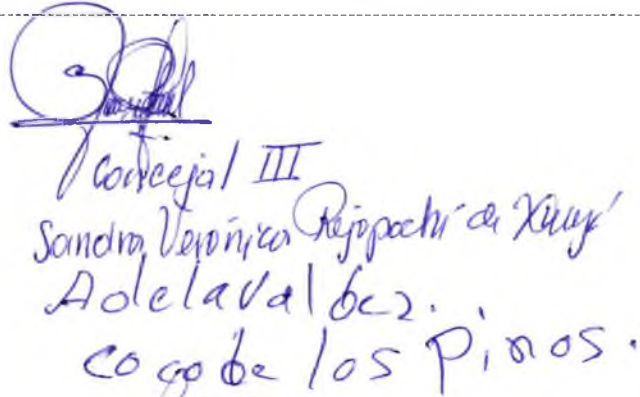 Concejal III
Sandra Verónica Rejopachi de Xauyá
Adelavaldez.
cocode los pinos.